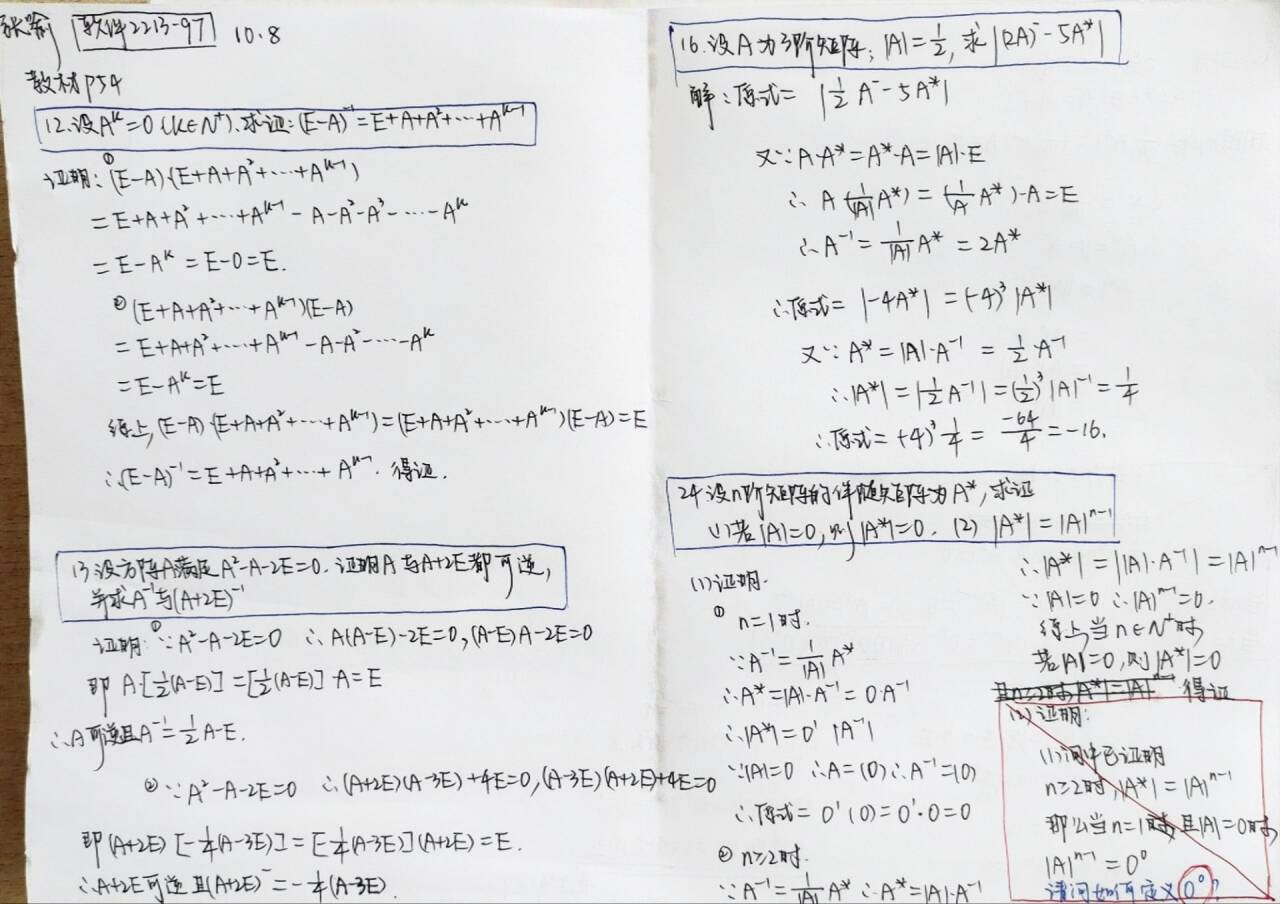 张喻 软件2213-97 10.8
教材P54
12.设A^k=0(k∈N⁺),求证:(E-A)⁻¹=E+A+A²+…+A^(k-1)
证明:①(E-A)(E+A+A²+…+A^(k-1))
=E+A+A²+…+A^(k-1)-A-A²-A³-…-A^k
=E-A^k=E-0=E.
②(E+A+A²+…+A^(k-1))(E-A)
=E+A+A²+…+A^(k-1)-A-A²-…-A^k
=E-A^k=E
综上,(E-A)(E+A+A²+…+A^(k-1))=(E+A+A²+…+A^(k-1))(E-A)=E
∴(E-A)⁻¹=E+A+A²+…+A^(k-1). 得证.
13.设方阵A满足A²-A-2E=0.证明A与A+2E都可逆,
并求A⁻¹与(A+2E)⁻¹
证明:①∵A²-A-2E=0 ∴A(A-E)-2E=0,(A-E)A-2E=0
即 A·[½(A-E)]=[½(A-E)]·A=E
∴A可逆且A⁻¹=½A-E.
②∵A²-A-2E=0 ∴(A+2E)(A-3E)+4E=0,(A-3E)(A+2E)+4E=0
即(A+2E)[-¼(A-3E)]=[-¼(A-3E)](A+2E)=E.
∴A+2E可逆且(A+2E)⁻=-¼(A-3E)
16.设A为3阶矩阵,|A|=½,求|(2A)⁻-5A*|
解:原式=|½A⁻-5A*|
又∵A·A*=A*·A=|A|·E
∴A(1/|A| A*)=(1/A A*)·A=E
∴A⁻¹=1/|A| A*=2A*
∴原式=|-4A*|=(-4)³|A*|
又∵A*=|A|·A⁻¹=½·A⁻¹
∴|A*|=|½A⁻¹|=(½)³|A|⁻¹=¼
∴原式=(-4)³¼=-64/4=-16.
24.设n阶矩阵的伴随矩阵为A*,求证
(1)若|A|=0,则|A*|=0. (2)|A*|=|A|^(n-1)
(1)证明.
①n=1时.
∵A⁻¹=1/|A| A*
∴A*=|A|·A⁻¹=0·A⁻¹
∴|A*|=0¹|A⁻¹|
∵|A|=0 ∴A=(0)∴A⁻¹=(0)
∴原式=0¹(0)=0¹·0=0
②n≥2时.
∵A⁻¹=1/|A| A* ∴A*=|A|·A⁻¹
∴|A*|=||A|·A⁻¹|=|A|^(n-1)
∵|A|=0 ∴|A|^(n-1)=0.
综上当n∈N⁺时
若|A|=0,则|A*|=0
且n≥2时,|A*|=|A|^(n-1) 得证
(2)证明:
(1)问中已证明
n≥2时,|A*|=|A|^(n-1)
那么当n=1时,且|A|=0时,
|A|^(n-1)=0⁰
请问如何定义0⁰?